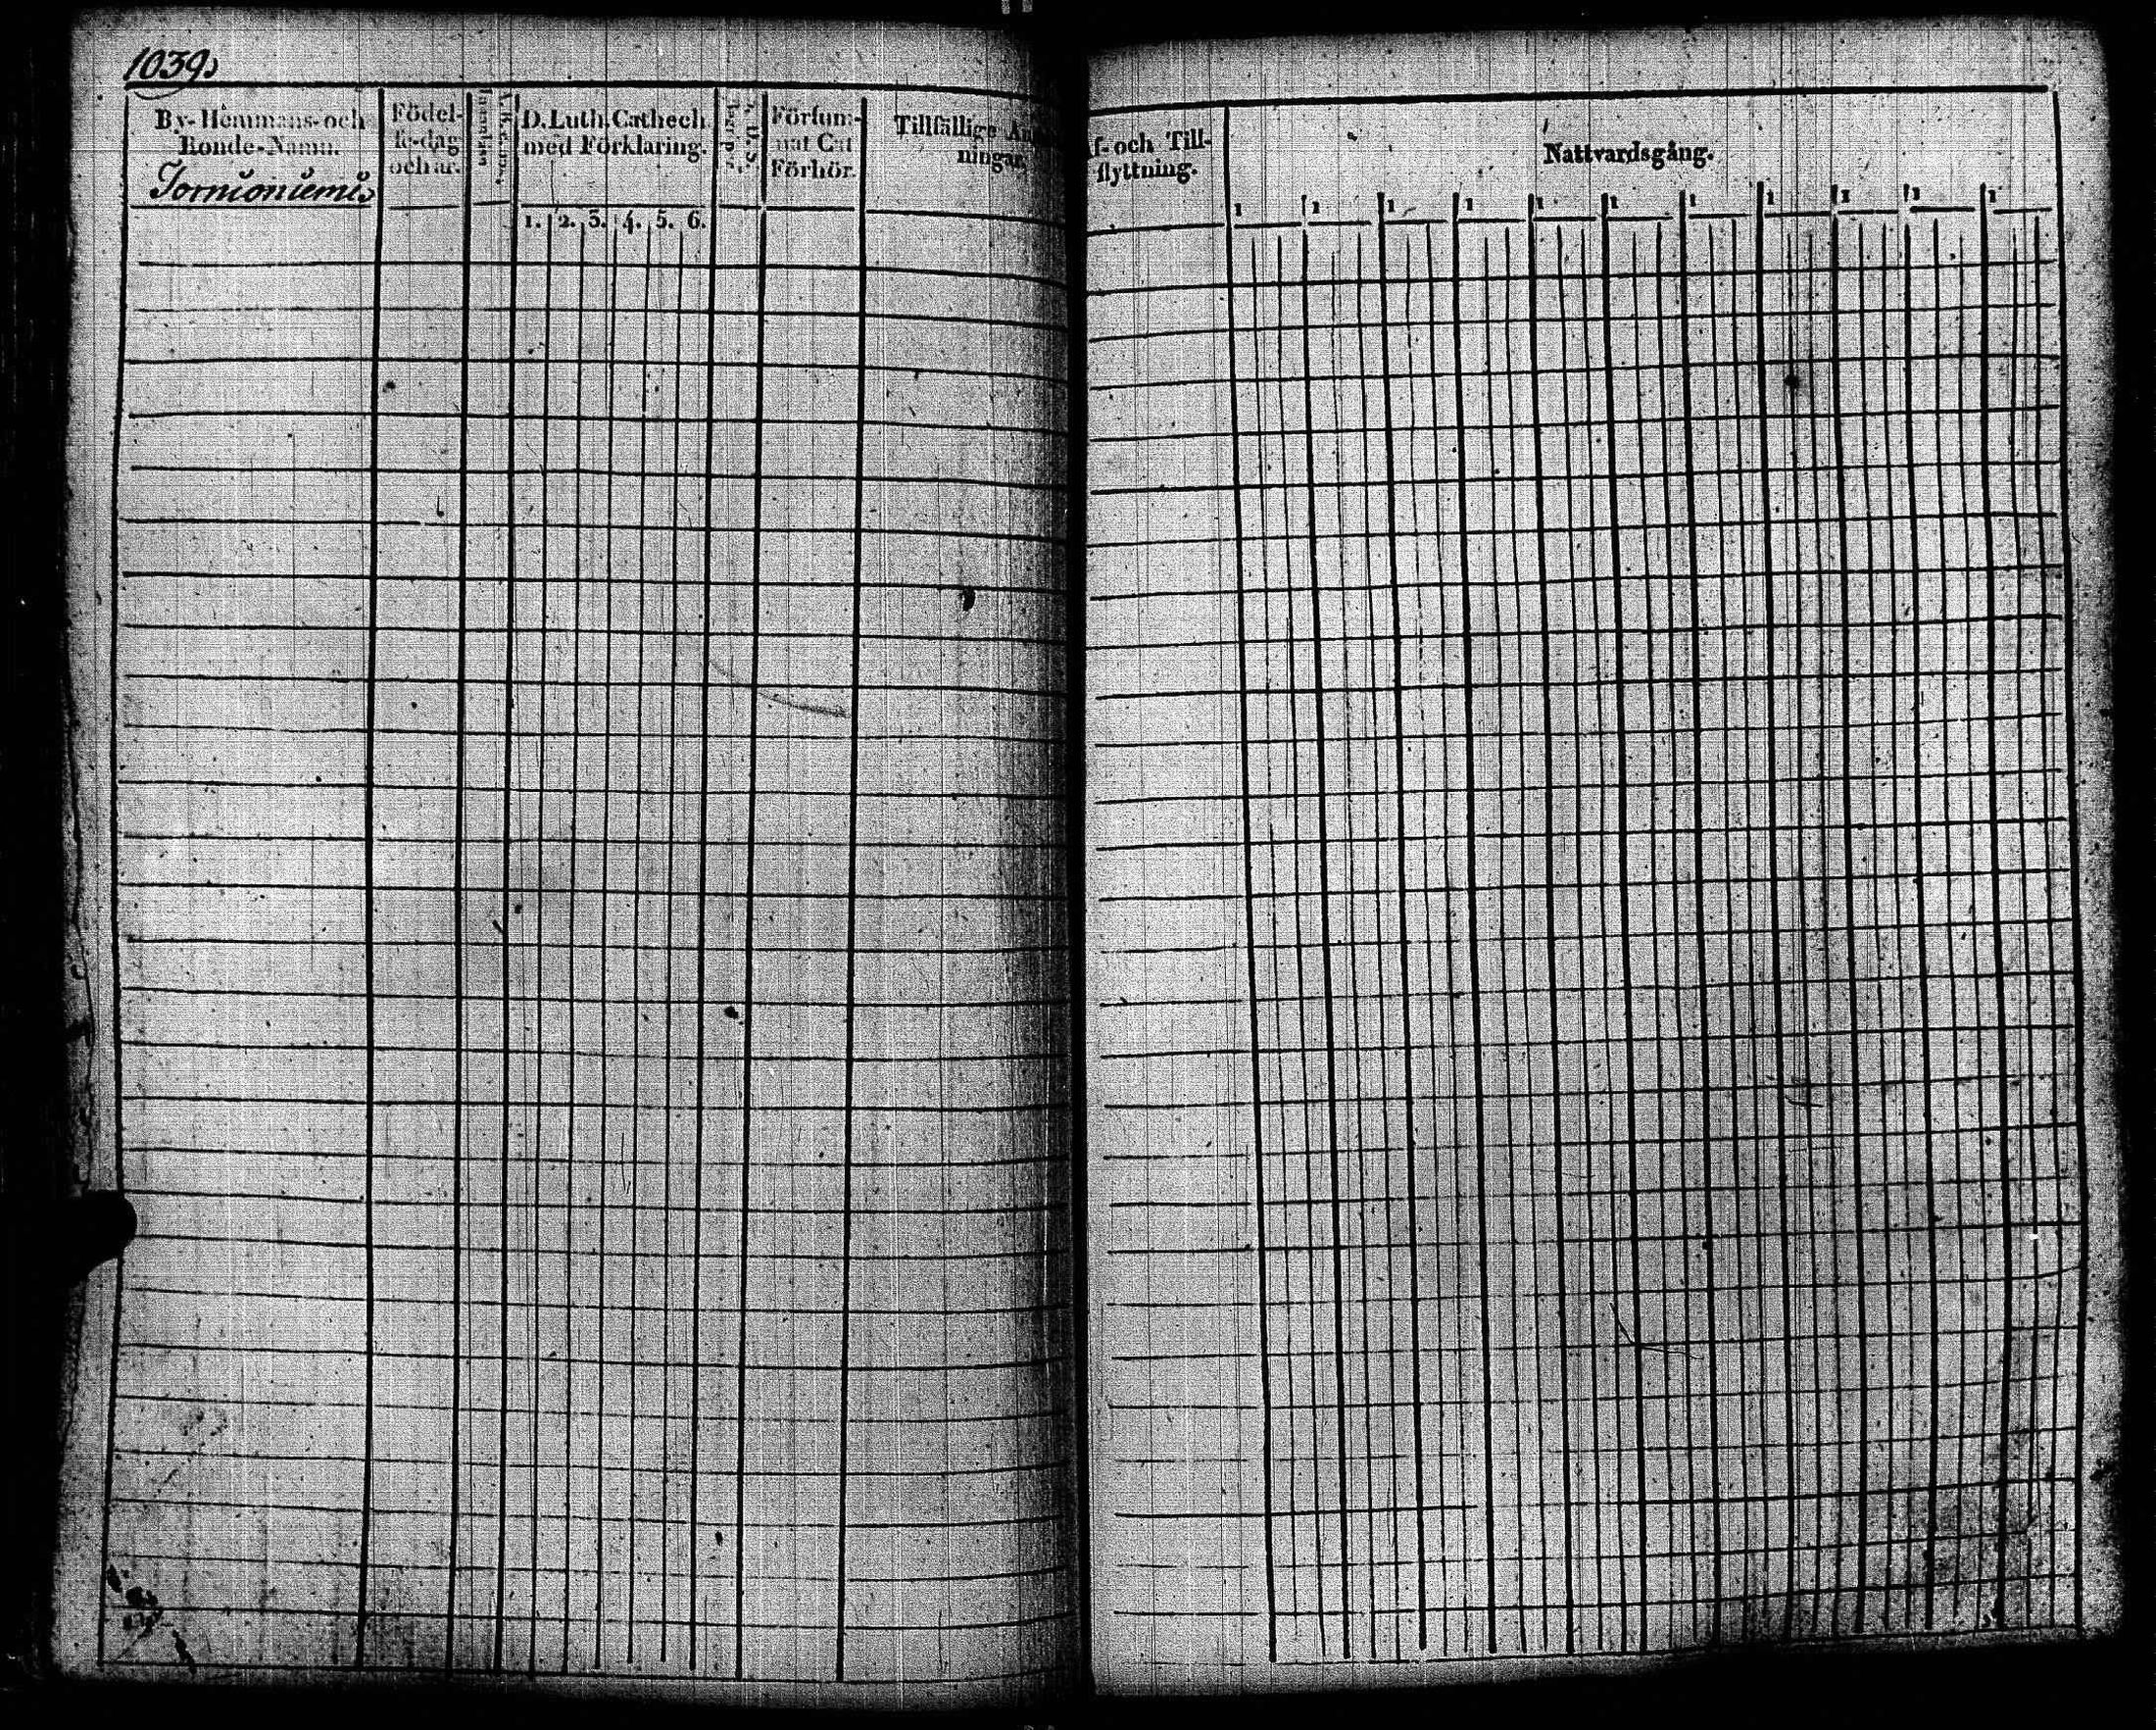 1039.
By- Hemmans- och
Bonde-Namn.
Tornioniemi
Födel-
se-dag
och år.
D. Luth. Cathech.
med Förklaring.
1. 2. 3. 4. 5. 6.
Försum-
nat Cat
Förhör.
Tillfällige An
ningar.
f- och Till-
flyttning.
Nattvardsgång.
1 1 1 1 1 1 1 1 1 1 1